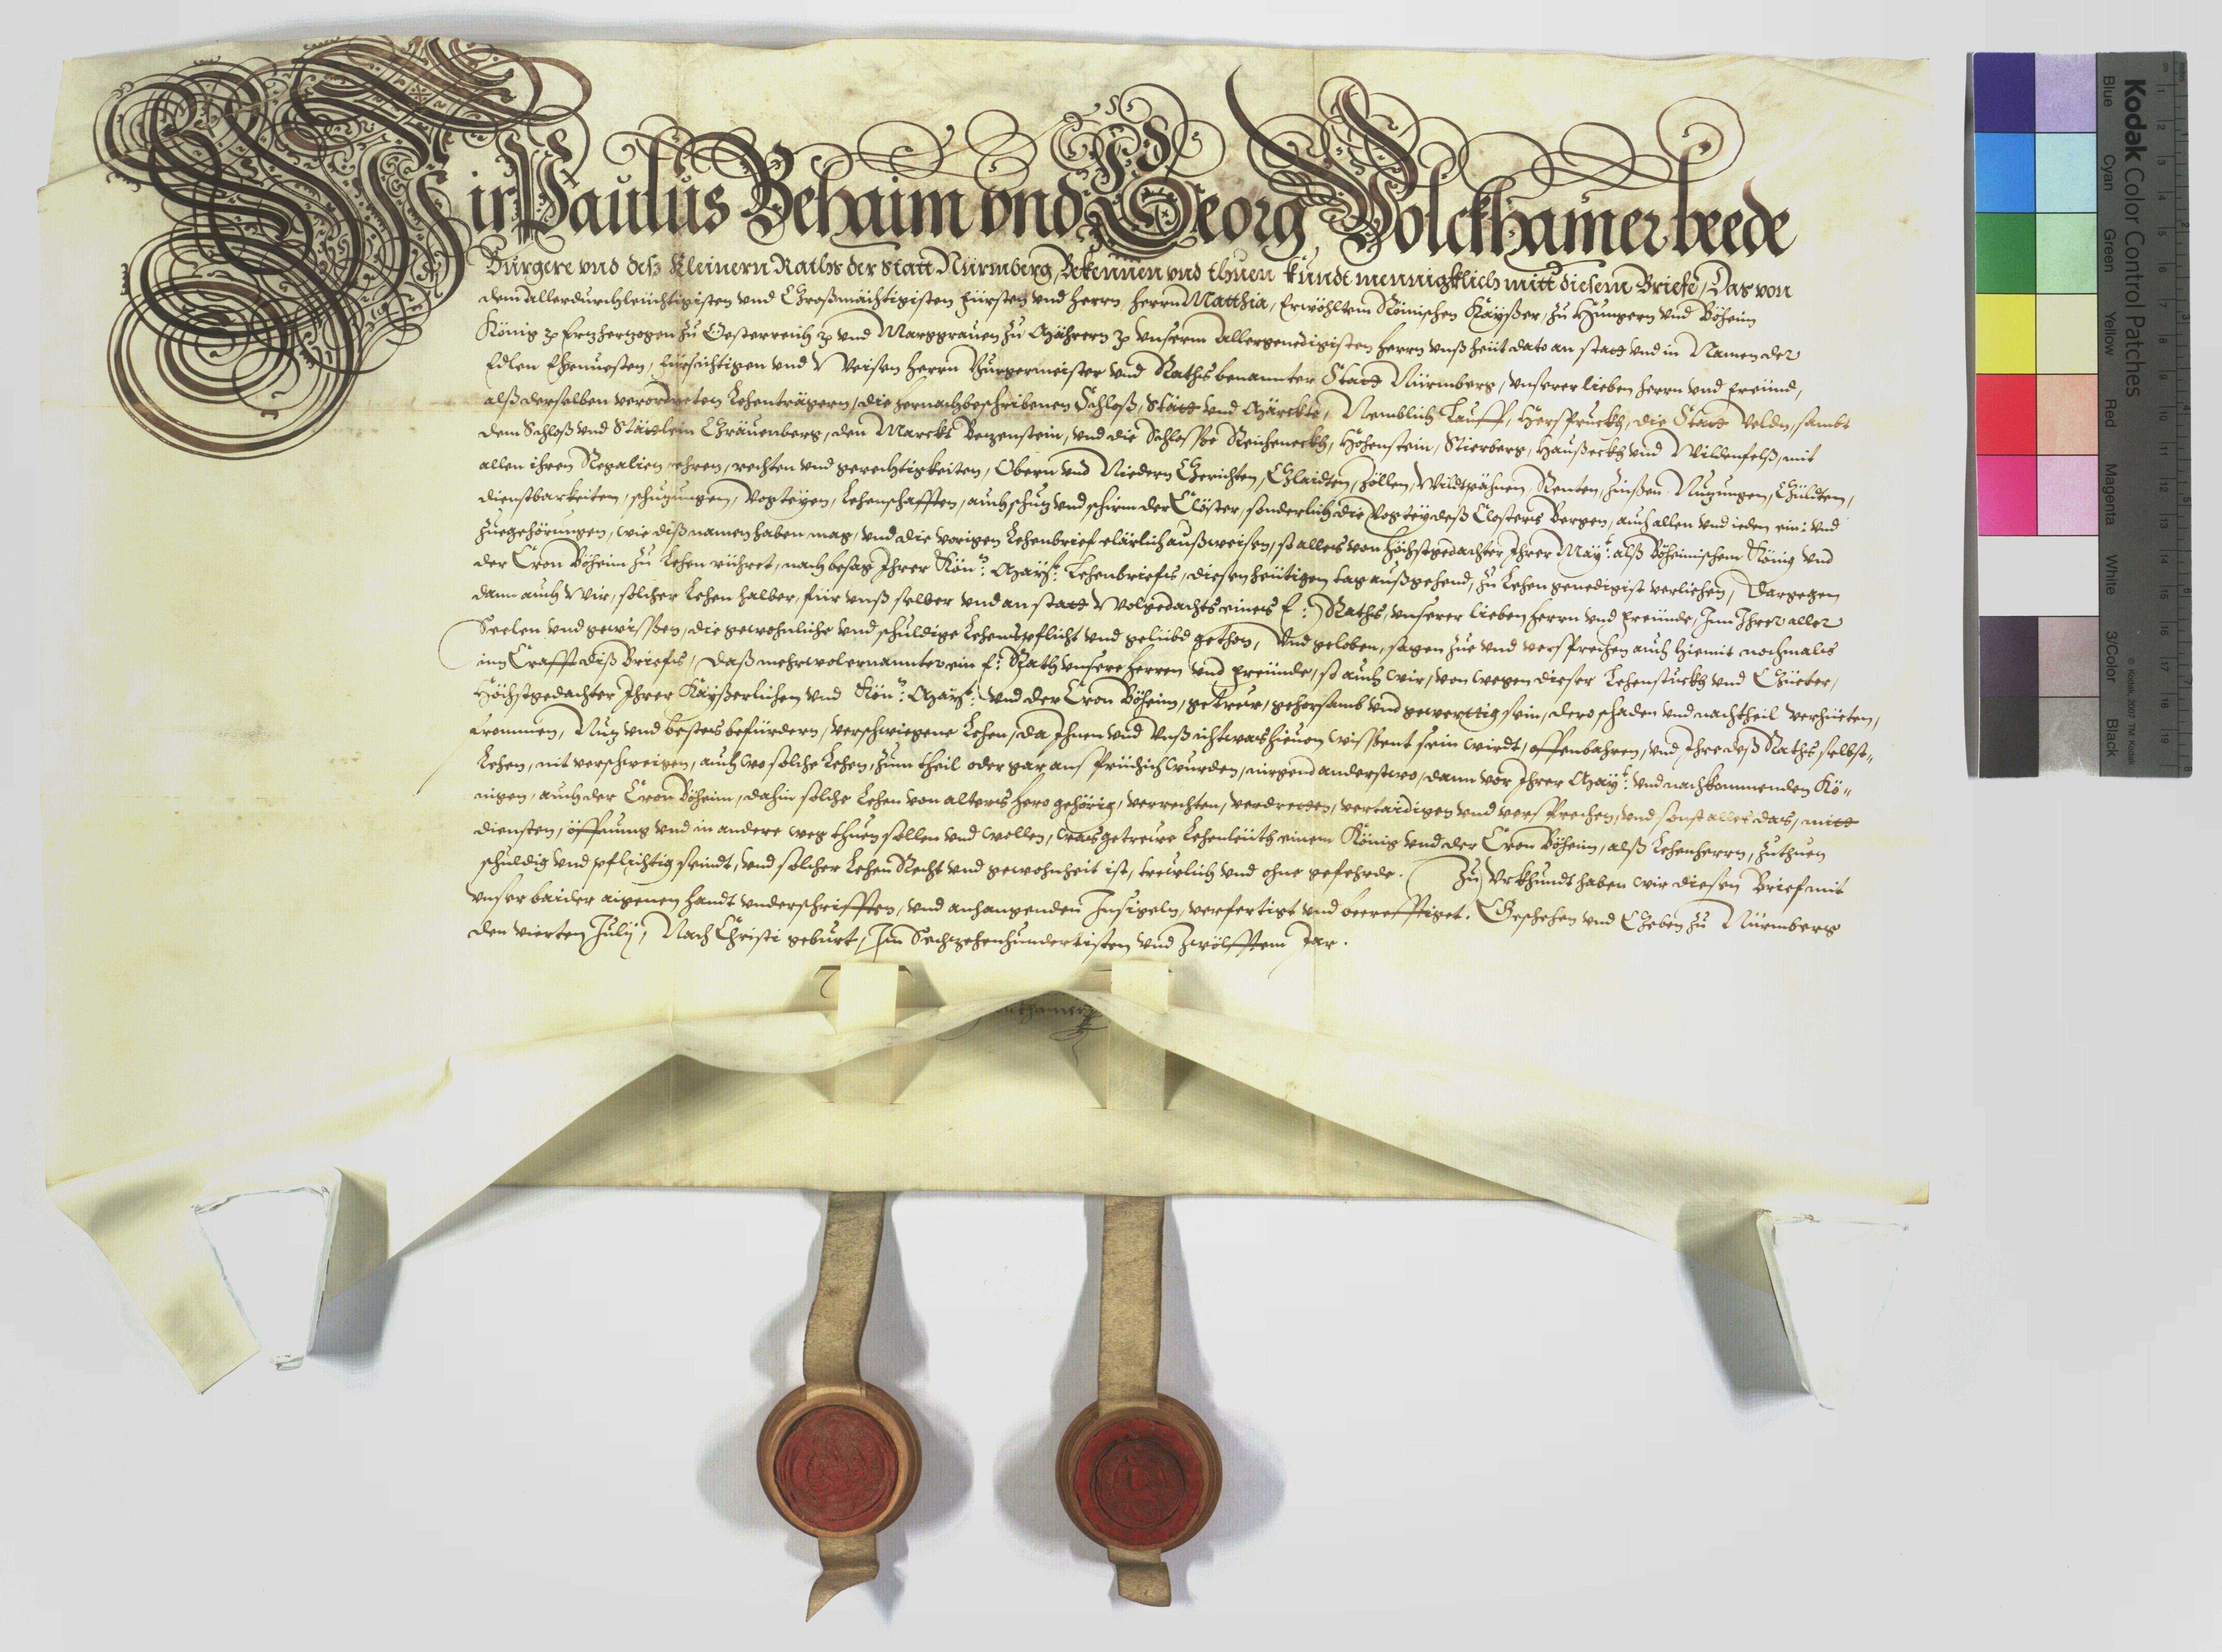 Wir Paulus Behaim vnd Georg Volckhamer beede
Burgere vnd deß Kleinern Raths der Statt Nürmberg, Bekennen vnd thuen kundt mennigklich mitt diesem Briefe, Das von
dem Allerdurchleüchtigisten vnd Großmächtigisten Fürsten vnd Herrn, Herrn Matthia, Erwöhltem Römischen Käyßer, zu Hungern vnd Böheim
König ꝛc Ertzhertzogen zu Oesterreich ꝛc vnd Marggrauen zu Mährern ꝛc vnserm Allergenedigisten Herrn vnß heüt dato an statt vnd in Namen der
Edlen Ehrnuesten, Fürsichtigen vnd Weisen Herrn Burgermeister vnd Raths benannter Statt Nürmberg, vnserer lieben Herrn vnd Freünd,
alß derselben verordneten Lehenträgern, die hernachbeschribenen Schloß, Stätt vnd Märckte, Nemblich Lauff, Herspruckh, die Statt Velden, sambt
dem Schloß vnd Stättlein Gräuenberg, den Marckt Bezenstein, vnd die Schlosse Reicheneckh, Hohenstein, Stierberg, Haußeckh vnd Wildenfelß, mit
allen ihren Regalien, ehren, rechten vnd gerechtigkeiten, Obern vnd Niedern Gerichten, Glaidten, Zöllen, Wildtpähnen, Renten, Zinßen, Nuzungen, Gülldten,
dienstbarkeiten, schuzungen, Vogteyen, Lehenschafften, auch schuz vnd schirm der Clöster, sonderlich die Vogtey deß Closters Bergen, auch allen vnd ieden ein: vnd
Zuegehörungen, wie diß namen haben mag, vnd die vorigen Lehenbrief clärlich außweisen, so alles von Höchstgedachter Ihrer May.t alß Böheimischem König vnd
der Cron Böheim zu Lehen rühret, nach besag Ihrer Kön: Mayt: Lehenbriefs, diesen heütigen tag außgehend, zu Lehen genedigist verliehen, Dargegen
dann auch Wir, solcher Lehen halber, für vnß selber vnd an statt Wolgedachts eines E: Raths, vnserer lieben Herrn vnd Freünde, Inn Ihrer aller
Seelen vnd gewissen, die gewohnliche vnd schuldige Lehenspflicht vnd gelübd gethon, Vnd geloben, sagen zue vnd versprechen auch hiemit nochmals
inn Crafft diß Briefs, daß mehrwolernannter ein E: Rath vnsere Herren vnd Freünde, so auch wir, von wegen dieser Lehenstuckh vnd Güeter,
Höchstgedachter Ihrer Käyßerlichen vnd Kön: Mayt: vnd der Cron Böheim, getrew, gehorsamb vnd gewerttig sein, dero schaden vnd nachtheil verhüeten,
frommen, Nuz vnd bestes befürdern, verschwiegene Lehen, da Ihnen vnd vnß ichtwas hieuon wissent sein wirdt, offenbahren, vnd Ihre deß Raths selbst-
Lehen, nit verschweigen, auch wo solche Lehen, zum theil oder gar ansprüchich wurden, nirgend anderstwo, dann vor Ihrer May.t vnd nachkommenden Kö-
nigen, auch der Cron Böheim, dahin solche Lehen von alters hero gehörig, verrechten, verdretten, vertaidigen vnd versprechen, vnd sonst alles das, mitt
diensten, öffnung vnd in andere weg thuen sollen vnd wellen, was getreue Lehenleüth einem König vnd der Cron Böheim, alß Lehenherrn, zuthuen
schuldig vnd pflichtig seindt, vnd solcher Lehen Recht vnd gewohnheit ist, treulich vnd ohne gefehrde. Zu Vrkhundt haben wir diesen Brief mit
vnser baider aigenen handt vnderschrifften, vnd anhangenden Insigeln, verfertigt vnd becrefftiget. Geschehen vnd Geben zu Nürmberg
den vierten July, Nach Christi geburt, Im Sechzehenhundertisten vnd Zwölfften Jar.
Kodak Color Control Patches
Blue Cyan Green Yellow Red Magenta White 3/Color Black
© Kodak, 2007 TM: Kodak